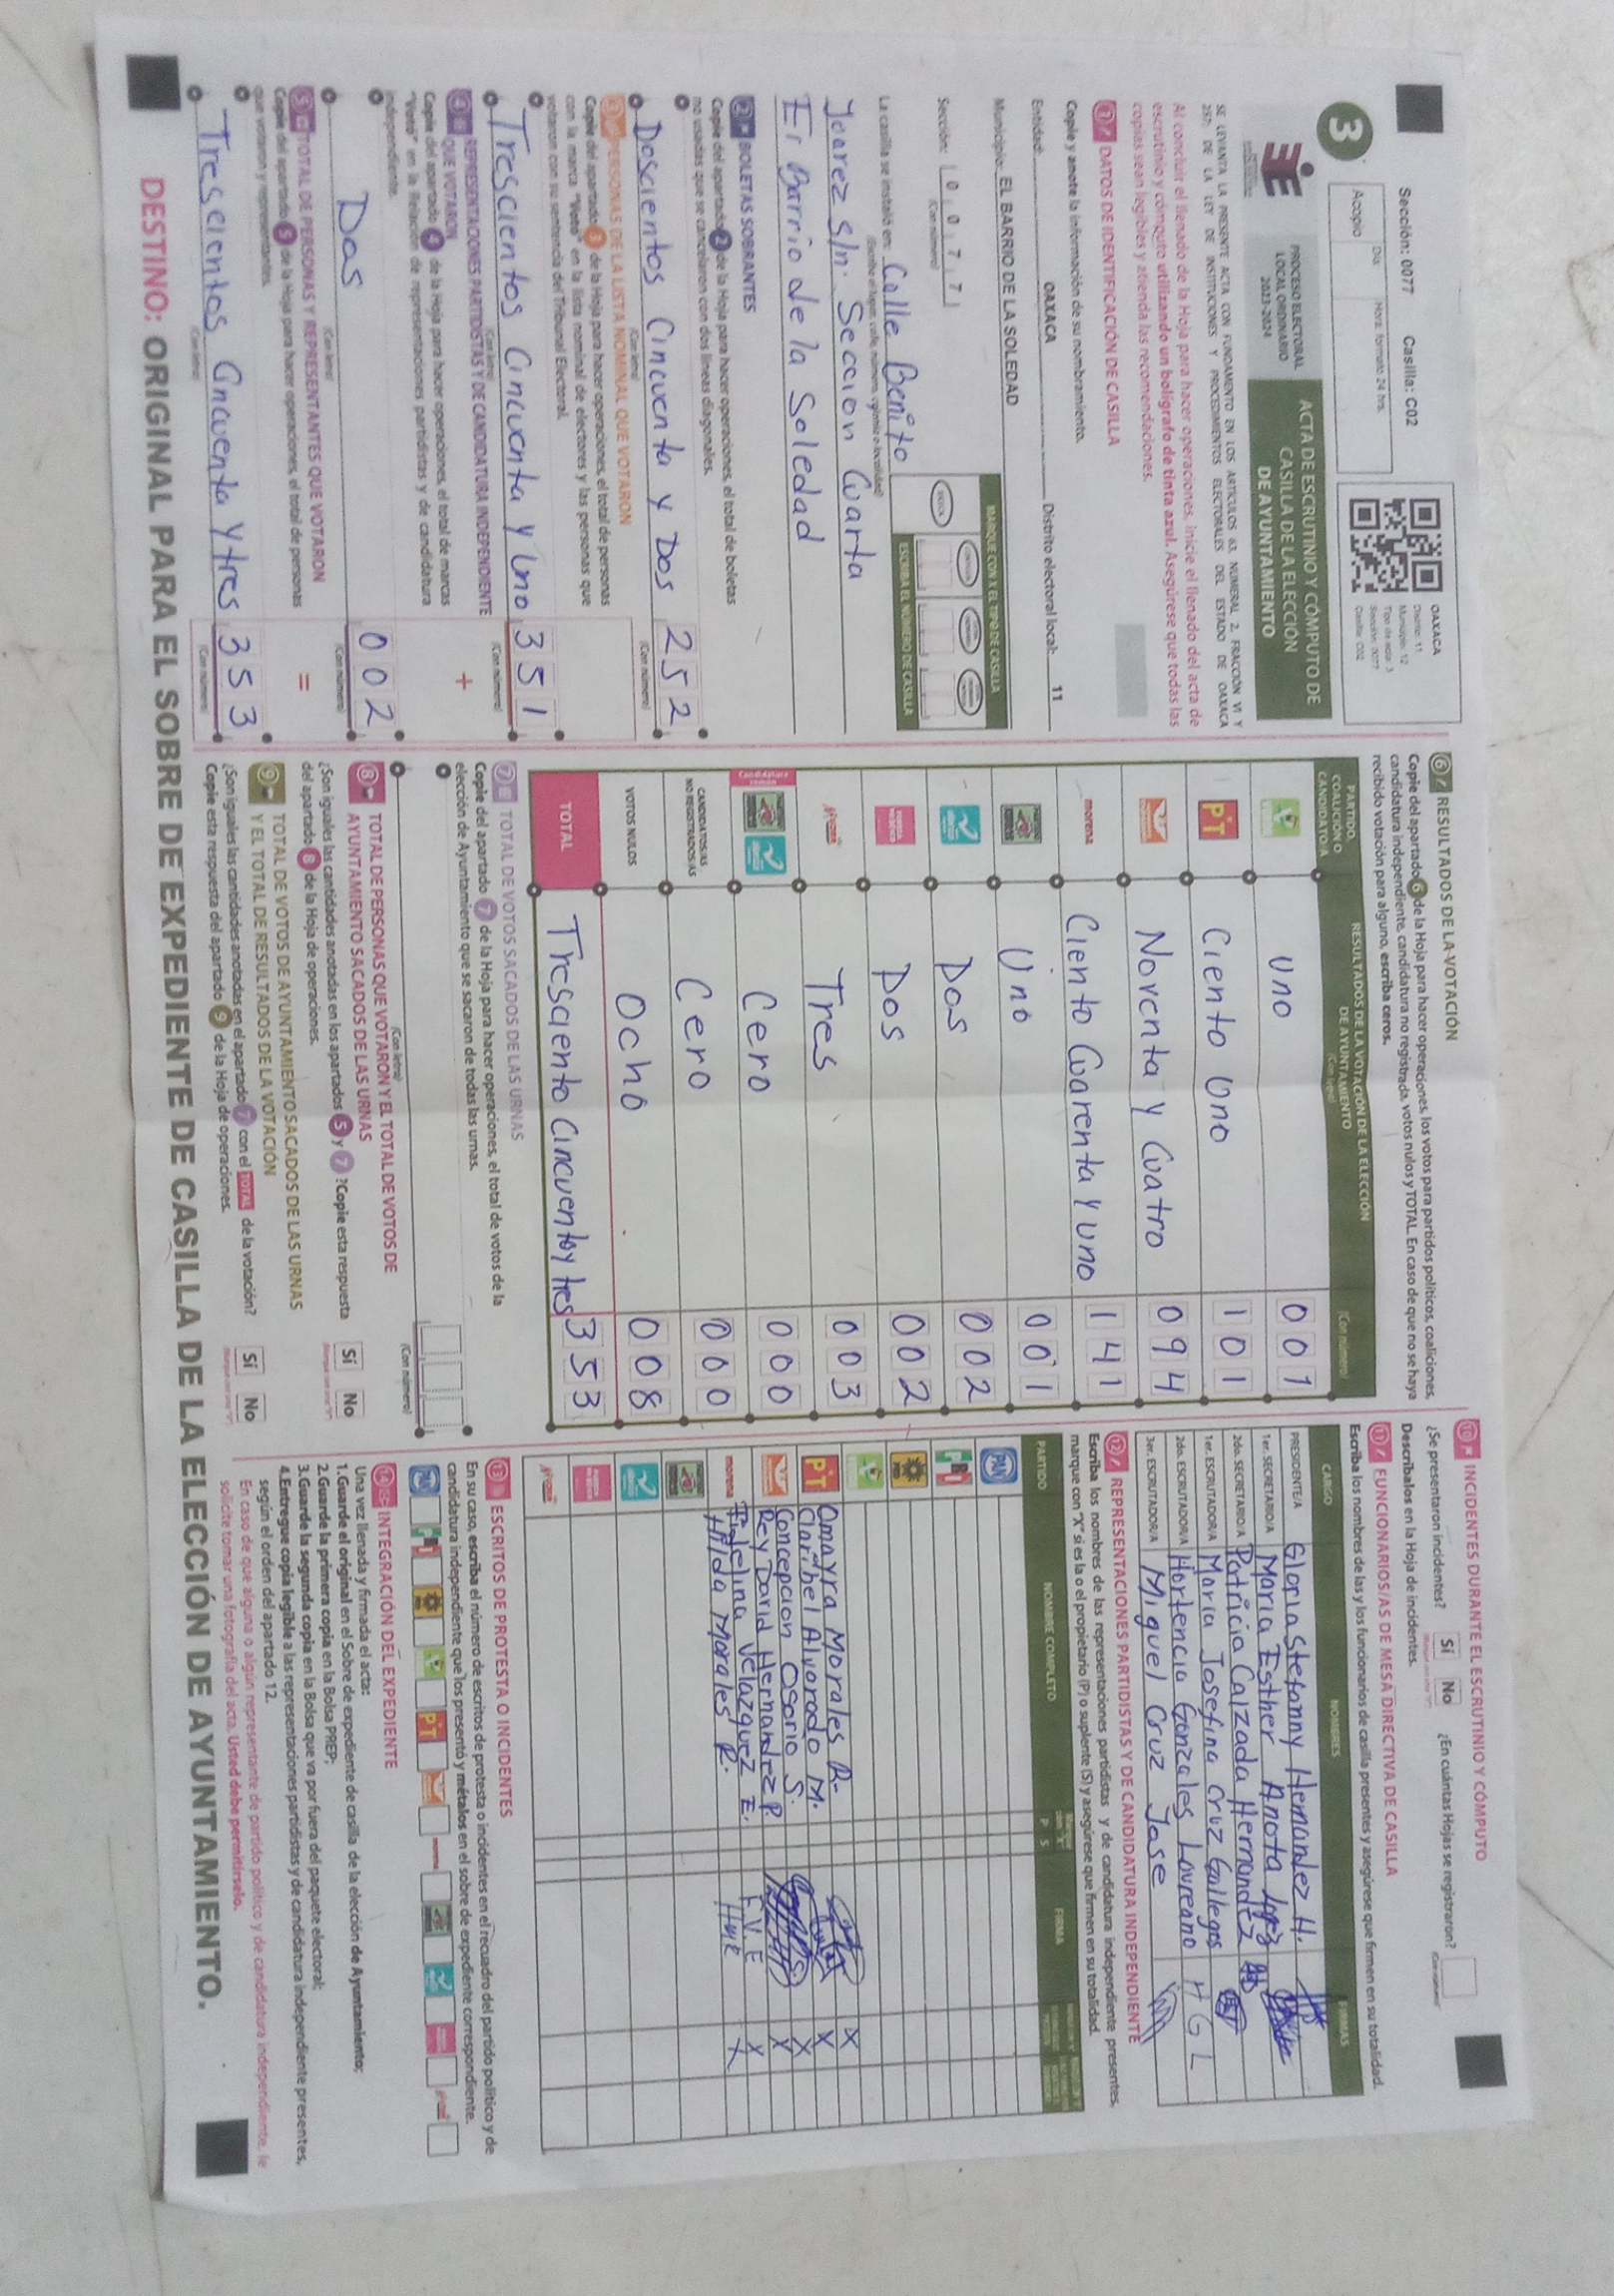 3
Sección: 0077 Casilla: C02
Día: Hora: formato 24 hrs.
Acopio
OAXACA
Distrito: 11
Municipio: 12
Tipo de acta: 3
Sección: 0077
Casilla: C02
PROCESO ELECTORAL
LOCAL ORDINARIO
2023-2024
ACTA DE ESCRUTINIO Y CÓMPUTO DE
CASILLA DE LA ELECCIÓN
DE AYUNTAMIENTO
SE LEVANTA LA PRESENTE ACTA CON FUNDAMENTO EN LOS ARTÍCULOS 63, NUMERAL 2, FRACCIÓN VI Y
257; DE LA LEY DE INSTITUCIONES Y PROCEDIMIENTOS ELECTORALES DEL ESTADO DE OAXACA
Al concluir el llenado de la Hoja para hacer operaciones, inicie el llenado del acta de
escrutinio y cómputo utilizando un bolígrafo de tinta azul. Asegúrese que todas las
copias sean legibles y atienda las recomendaciones.
1 DATOS DE IDENTIFICACIÓN DE CASILLA
Copie y anote la información de su nombramiento.
Entidad: OAXACA Distrito electoral local: 11
Municipio: EL BARRIO DE LA SOLEDAD
Sección: 0 0 7 7
(Con número)
MARQUE CON X EL TIPO DE CASILLA
ESCRIBA EL NÚMERO DE CASILLA
La casilla se instaló en: Calle Benito
Juarez s/n. Seccion Cuarta
El Barrio de la Soledad
2 BOLETAS SOBRANTES
Copie del apartado 2 de la Hoja para hacer operaciones, el total de boletas
no usadas que se cancelaron con dos líneas diagonales.
Doscientos Cincuenta y Dos 252
(Con letra) (Con número)
3 PERSONAS DE LA LISTA NOMINAL QUE VOTARON
Copie del apartado 3 de la Hoja para hacer operaciones, el total de personas
con la marca "Votó" en la lista nominal de electores y las personas que
votaron con su sentencia del Tribunal Electoral.
Trescientos Cincuenta y Uno 351
(Con letra) (Con número)
4 REPRESENTACIONES PARTIDISTAS Y DE CANDIDATURA INDEPENDIENTE
QUE VOTARON +
Copie del apartado 4 de la Hoja para hacer operaciones, el total de marcas
"Votó" en la Relación de representaciones partidistas y de candidatura
independiente.
Dos 002
(Con letra) (Con número)
5 TOTAL DE PERSONAS Y REPRESENTANTES QUE VOTARON =
Copie del apartado 5 de la Hoja para hacer operaciones, el total de personas
que votaron y representantes.
Trescientos Cincuenta Y tres 353
(Con letra) (Con número)
6 RESULTADOS DE LA VOTACIÓN
Copie del apartado 6 de la Hoja para hacer operaciones, los votos para partidos políticos, coaliciones,
candidatura independiente, candidatura no registrada, votos nulos y TOTAL. En caso de que no se haya
recibido votación para alguno, escriba ceros.
PARTIDO, COALICIÓN O CANDIDATO/A
RESULTADOS DE LA VOTACIÓN DE LA ELECCIÓN
DE AYUNTAMIENTO
(Con letra) (Con número)
uno 001
PT Ciento Uno 101
Noventa y Cuatro 094
morena Ciento Cuarenta Y uno 141
Uno 001
Dos 002
Dos 002
Tres 003
Candidatura común Cero 000
CANDIDATOS/AS NO REGISTRADOS/AS Cero 000
VOTOS NULOS Ocho 008
TOTAL Tresciento Cincuentay tres 353
7 TOTAL DE VOTOS SACADOS DE LAS URNAS
Copie del apartado 7 de la Hoja para hacer operaciones, el total de votos de la
elección de Ayuntamiento que se sacaron de todas las urnas.
(Con letra) (Con número)
8 TOTAL DE PERSONAS QUE VOTARON Y EL TOTAL DE VOTOS DE
AYUNTAMIENTO SACADOS DE LAS URNAS
¿Son iguales las cantidades anotadas en los apartados 5 y 7 ? Copie esta respuesta
del apartado 8 de la Hoja de operaciones. Sí No
9 TOTAL DE VOTOS DE AYUNTAMIENTO SACADOS DE LAS URNAS
Y EL TOTAL DE RESULTADOS DE LA VOTACIÓN
¿Son iguales las cantidades anotadas en el apartado 7 con el TOTAL de la votación?
Copie esta respuesta del apartado 9 de la Hoja de operaciones. Sí No
10 INCIDENTES DURANTE EL ESCRUTINIO Y CÓMPUTO
¿Se presentaron incidentes? Sí No ¿En cuántas Hojas se registraron?
Descríbalos en la Hoja de incidentes.
11 FUNCIONARIOS/AS DE MESA DIRECTIVA DE CASILLA
Escriba los nombres de las y los funcionarios de casilla presentes y asegúrese que firmen en su totalidad.
CARGO NOMBRES FIRMAS
PRESIDENTE/A Gloria Stefanny Hernandez H.
1er. SECRETARIO/A Maria Esther Anota
2do. SECRETARIO/A Patricia Calzada Hernandez
1er. ESCRUTADOR/A Maria Josefina Cruz Gallegos
2do. ESCRUTADOR/A Hortencia Gonzales Laureano H G L
3er. ESCRUTADOR/A Miguel Cruz Jose
12 REPRESENTACIONES PARTIDISTAS Y DE CANDIDATURA INDEPENDIENTE
Escriba los nombres de las representaciones partidistas y de candidatura independiente presentes,
marque con "X" si es la o el propietario (P) o suplente (S) y asegúrese que firmen en su totalidad.
PARTIDO NOMBRE COMPLETO P S FIRMA
PAN
PRI
PRD
Omayra Morales R. X
PT Claribel Alvarado M. X
Concepcion Osorio S. X
Rey David Hernandez P. X
Fidelina Velazquez E. F.V.E X
morena Hilda Morales R. X
13 ESCRITOS DE PROTESTA O INCIDENTES
En su caso, escriba el número de escritos de protesta o incidentes en el recuadro del partido político y de
candidatura independiente que los presentó y métalos en el sobre de expediente correspondiente.
PAN PRI PRD PT morena
14 INTEGRACIÓN DEL EXPEDIENTE
Una vez llenada y firmada el acta:
1.Guarde el original en el Sobre de expediente de casilla de la elección de Ayuntamiento;
2.Guarde la primera copia en la Bolsa PREP;
3.Guarde la segunda copia en la Bolsa que va por fuera del paquete electoral;
4.Entregue copia legible a las representaciones partidistas y de candidatura independiente presentes,
según el orden del apartado 12.
En caso de que alguna o algún representante de partido político y de candidatura independiente, le
solicite tomar una fotografía del acta, Usted debe permitírselo.
DESTINO: ORIGINAL PARA EL SOBRE DE EXPEDIENTE DE CASILLA DE LA ELECCIÓN DE AYUNTAMIENTO.